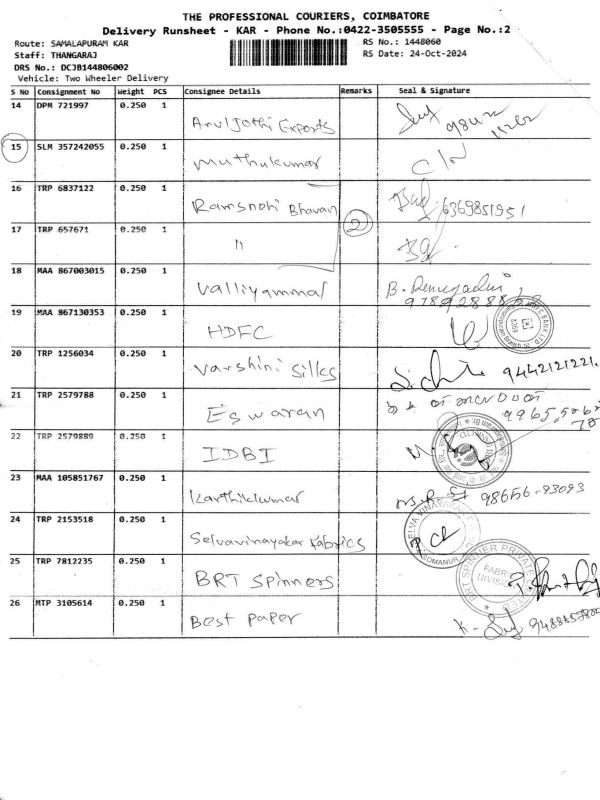 THE PROFESSIONAL COURIERS, COIMBATORE
Delivery Runsheet - KAR - Phone No.:0422-3505555 - Page No.:2
Route: SAMALAPURAM KAR RS No.: 1448060
Staff: THANGARAJ RS Date: 24-Oct-2024
DRS No.: DCJB144806002
Vehicle: Two Wheeler Delivery
S No Consignment No Weight PCS Consignee Details Remarks Seal & Signature
14 DPM 721997 0.250 1 Aruljothi Exports
15 SLM 357242055 0.250 1 Muthukumar
16 TRP 6837122 0.250 1 Bhavan 6369851951
17 TRP 657671 0.250 1 " 2
18 MAA 867003015 0.250 1 Valliyammal
19 MAA 867130353 0.250 1 HDFC
20 TRP 1256034 0.250 1 Varshini Silks 9442121221
21 TRP 2579788 0.250 1 Eswaran
22 TRP 2579889 0.250 1 IDBI
23 MAA 105851767 0.250 1 Karthikkumar 98656-93093
24 TRP 2153518 0.250 1 Selvavinayakar Fabrics
25 TRP 7812235 0.250 1 BRT Spinners BRT SPINNER PRIVATE LIMITED FABRIC DIVISION
26 MTP 3105614 0.250 1 Best paper